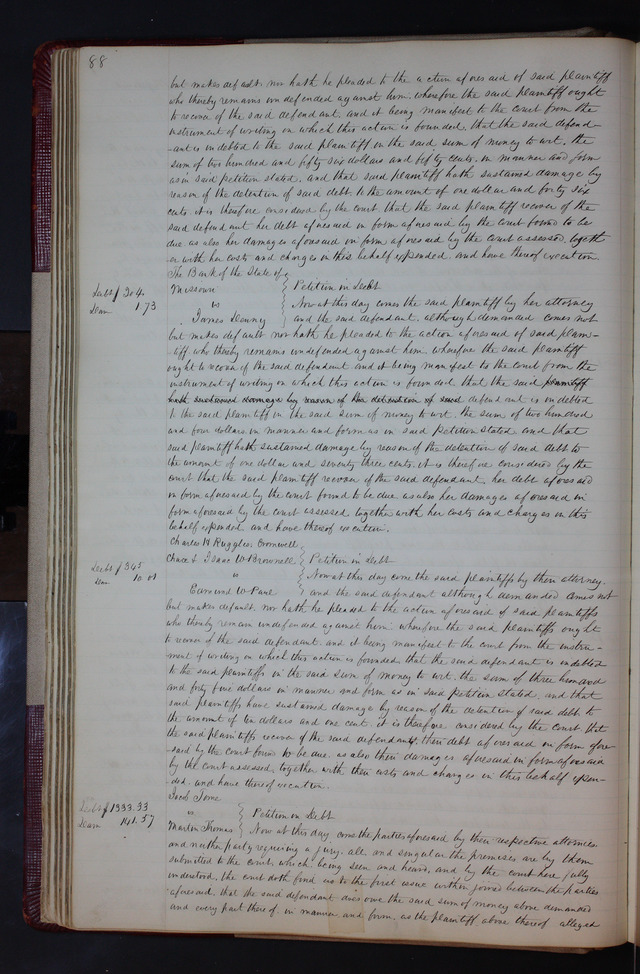 88
but makes default. nor hath he pleaded to the action aforesaid of said plaintiff
who thereby remains undefended against him. wherefore the said plaintiff ought
to recover of the said defendant. and it being manifest to the court from the
instrument of writing on which this action is founded, that the said defend-
-ant is indebted to the said plaintiff in the said sum of money to wit. the
sum of two hundred and fifty six dollars and fifty cents. in manner and form
as in said petition stated. and that said plaintiff hath sustained damage by
reason of the detention of said debt. to the amount of one dollar and forty six
cents. it is therefore considered by the court, that the said plaintiff recover of the
said defendant her debt aforesaid in form aforesaid by the court found to be
due as also her damages aforesaid in form aforesaid by the court assessed, togeth
er with her costs and charges in this behalf expended. and have thereof execution.
The Bank of the State of
Missouri } Petition in Debt
Debt $ 204.
Dam 1.73
vs } Now at this day comes the said plaintiff by her attorney
James } and the said defendant. although demanded comes not
but makes default nor hath he pleaded to the action aforesaid of said plain-
tiff. who thereby remains undefended against him wherefore the said plaintiff
ought to recover of the said defendant and it being manifest to the court from the
instrument of writing on which this action is founded that the said plaintiff
hath sustained damage by reason of the detention of said defendant is indebted
to the said plaintiff in the said sum of money to wit. the sum of two hundred
and four dollars. in manner and form as in said petition stated and that
said plaintiff hath sustained damage by reason of the detention of said debt to
the amount of one dollar and seventy three cents. it is therefore considered by the
court that the said plaintiff recover of the said defendant, her debt aforesaid
in form aforesaid by the court found to be due. as also her damages aforesaid in
form aforesaid by the court assessed together with her costs and charges in this
behalf expended. and have thereof execution.
Charles H Ruggles. Cromwell
& Isaac W Brownell } Petition in Debt
Debt $ 345
Dam 10.01
vs } Now at this day come the said plaintiffs by their attorney.
W Pane } and the said defendant although demanded comes not
but makes default. nor hath he pleaded to the action aforesaid of said plaintiffs
who thereby remain undefended against him wherefore the said plaintiffs ought
to recover of the said defendant. and it being manifest to the court from the instru-
ment of writing on which this action is founded, that the said defendant is indebted
to the said plaintiffs in the said sum of money to wit. the sum of three hundred
and forty five dollars in manner and form as in said petition stated. and that
said plaintiffs have sustained damage by reason of the detention of said debt. to
the amount of ten dollars and one cent. it is therefore considered by the court that
the said plaintiffs recover of the said defendant, their debt aforesaid in form afore
-said by the court found to be due. as also their damages aforesaid in form aforesaid
by the court assessed, together with their costs and charges in this behalf expen-
ded. and have thereof execution.
Jacob Tome
Debt $ 1333.33
Dam 141.57
vs } Petition in Debt
Martin Thomas } Now at this day come the parties aforesaid by their respective attornies
and neither party requiring a jury. all and singular the premises are by them
submitted to the court. which being seen and heard, and by the court here fully
understood, the court doth find as to the first issue within joined between the parties
aforesaid, that the said defendant does owe the said sum of money above demanded
and every part thereof. in manner and form, as the plaintiff above thereof alleged